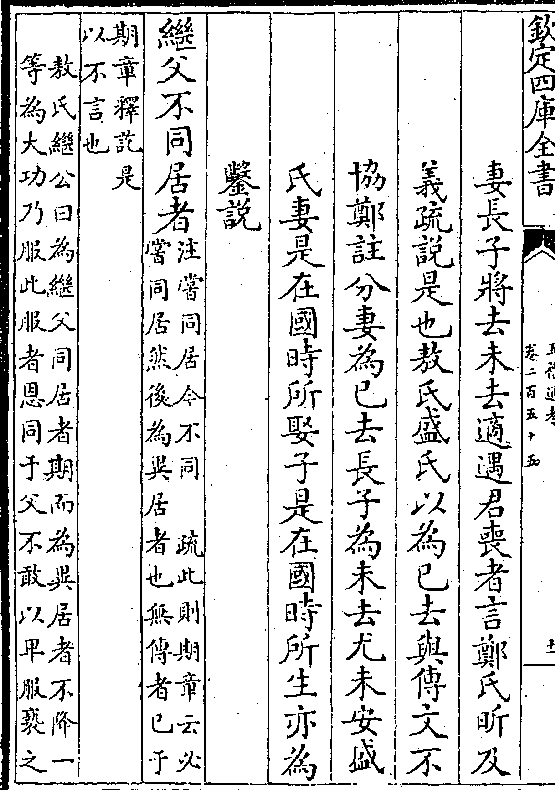 欽定四庫全書
五禮通考
卷二百五十五
妻長子將去未去適遇君喪者言鄭氏昕及
義疏說是也敖氏盛氏以為已去與傳文不
協鄭註分妻為已去長子為未去尤未安盛
氏妻是在國時所娶子是在國時所生亦為
鑿說
繼父不同居者
注嘗同居今不同　疏此則期章云必
嘗同居然後為異居者也無傳者已于
期章釋訖是
以不言也
敖氏繼公曰為繼父同居者期而為異居者不降一
等為大功乃服此服者恩同于父不敢以卑服褻之